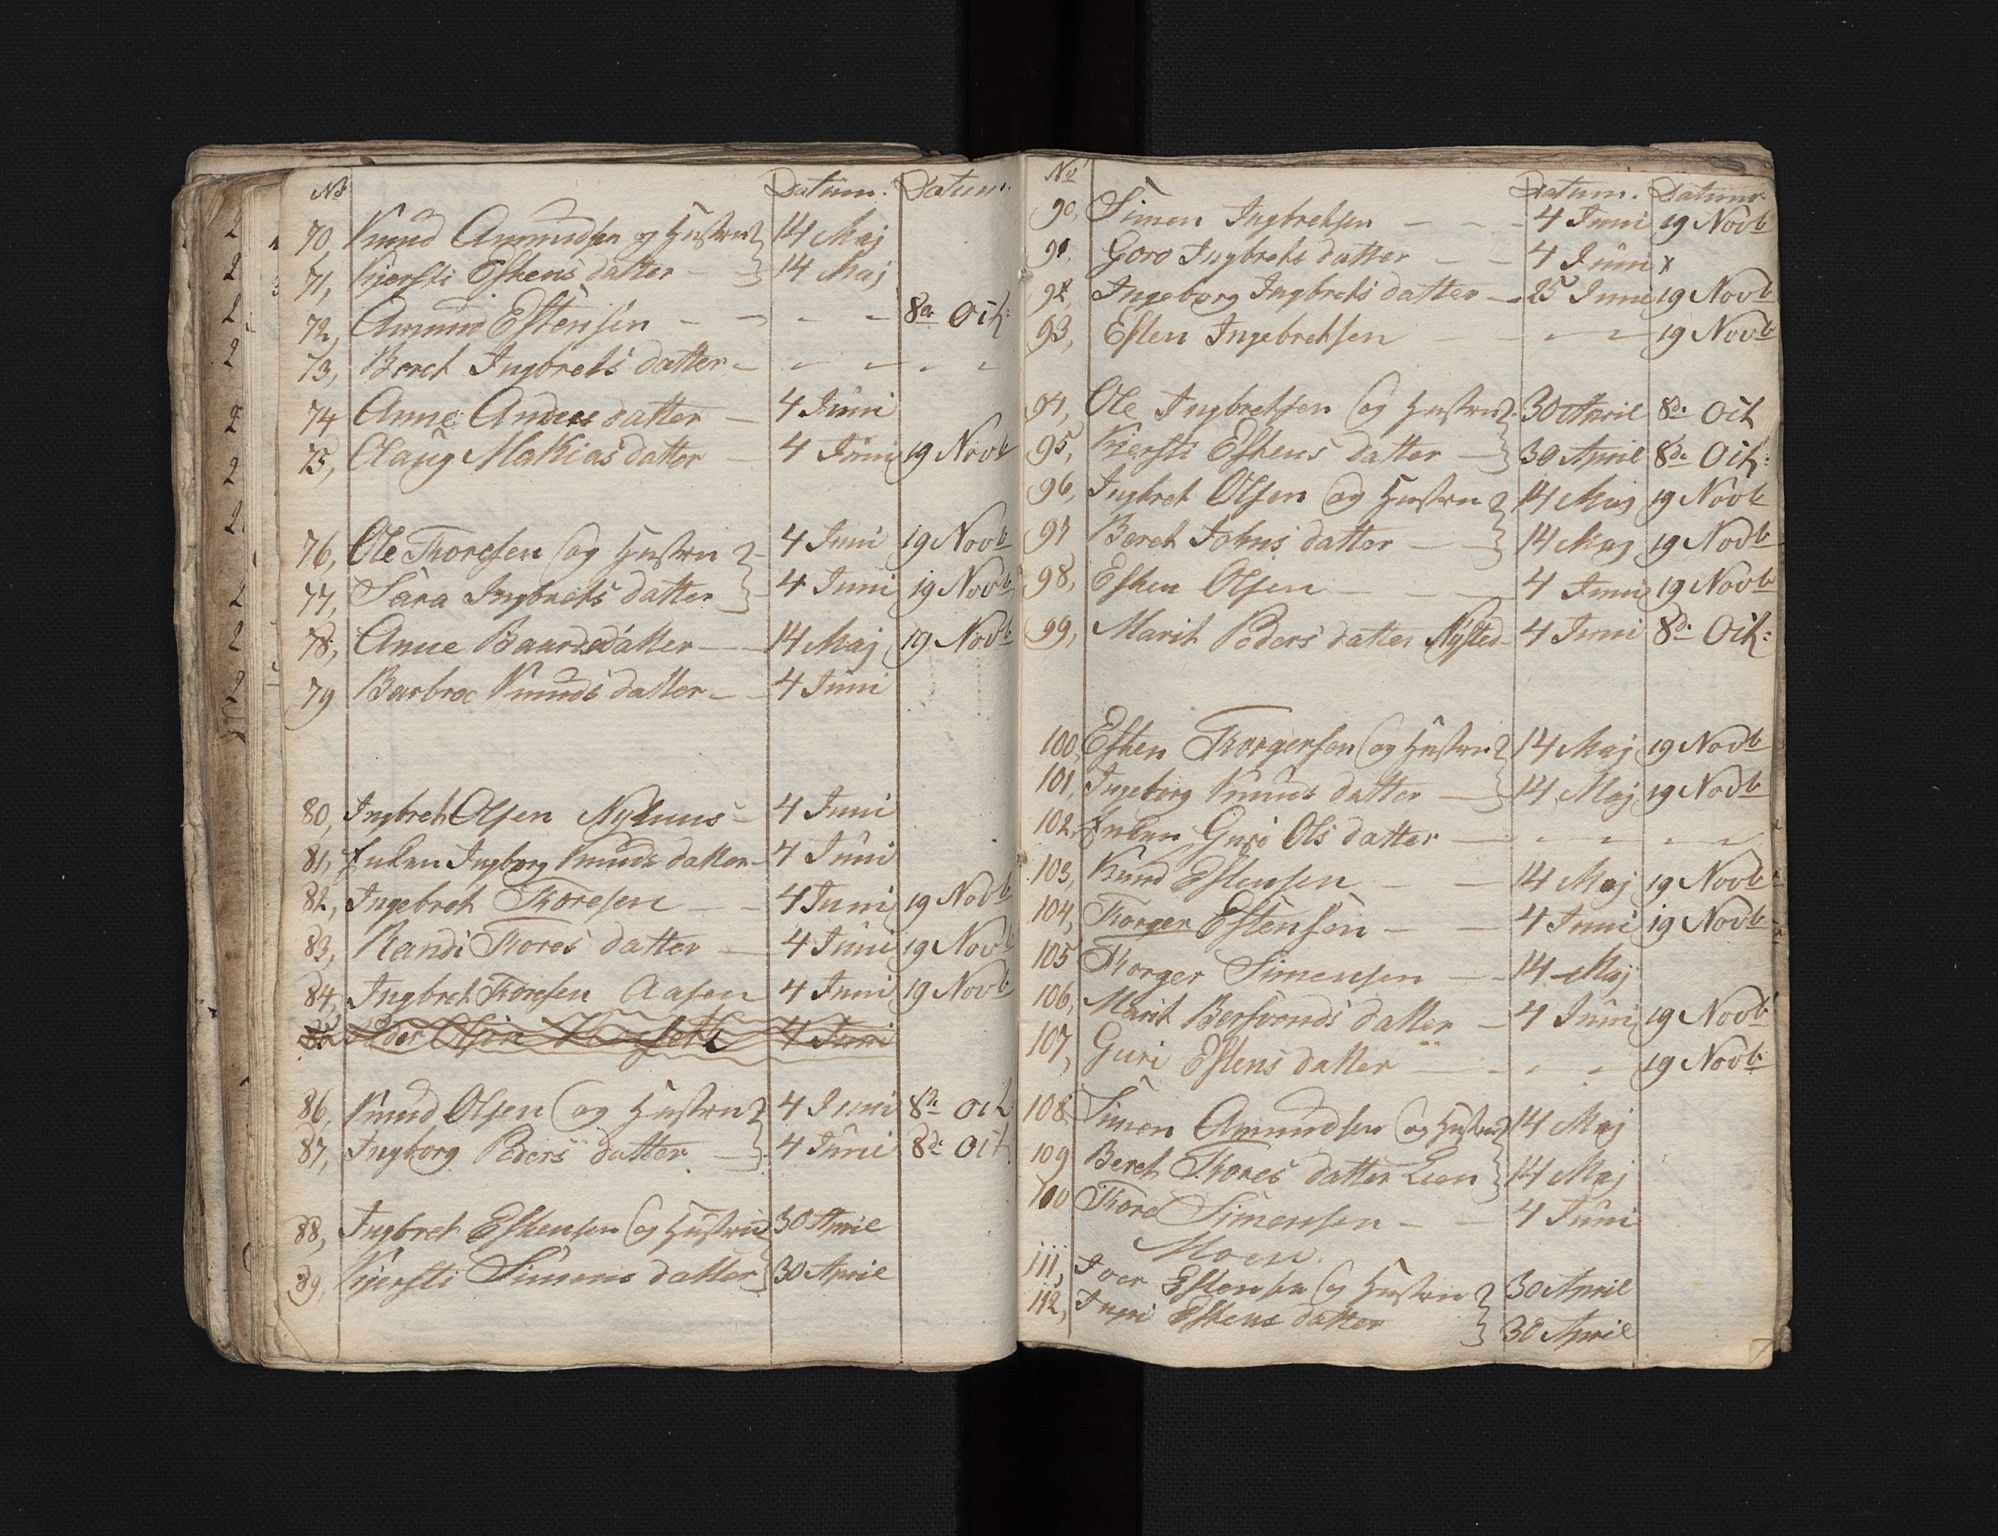 No Datum. Datum.
70, Knud Amundsen og Hustru 14 Maj
71, Kjersti Estens datter 14 Maj
72, Amund Estensen - - - - 8de Oct:
73, Beret Ingbrets datter - - - - -
74 Anne Anders datter - 4 Juni
75, Olaug Mathias datter - 4 Juni 19 Novb
76, Ole Thoresen (og Hustru 4 Juni 19 Novb
77, Sara Ingbrets datter 4 Juni 19 Novb
78, Anne Baardsdatter - 14 Maj 19 Novb
79 Barbroe Knuds datter - 4 Juni
80, Ingbret Olsen Nyhuus - 4 Juni
81, Enken Ingborg Knuds datter - 4 Juni
82, Ingebret Thoresen - 4 Juni 19 Novb
83, Randi Thores datter - 4 Juni 19 Novb
84, Ingbret Thoresen Aasen 4 Juni 19 Novb
Peder Olsen 4 Juni
86, Knud Olsen (og Hustru 4 Juni 8de Oct.
87, Ingborg Peders datter - 4 Juni 8de Oct.
88, Ingbret Estensen (og Hustru 30 April
89, Kjersti Simens datter 30 April
No Datum. Datum
90, Simen Ingbretsen - - - 4 Juni 19 Novb
91 Goro Ingbrets datter - - 4 Juni x
92, Ingeborg Ingbrets datter - 25 Juni 19 Novb
93, Esten Ingebretsen - - - - 19 Novb
94, Ole Ingbretsen (og Hustru 30 April 8de Oct
95, Kjersti Estens datter - 30 April 8de Oct:
96, Ingbret Olsen (og Hustru 14 Maj 19 Novb
97 Beret Johns datter - - 14 Maj 19 Novb
98, Esten Olsen - - - 4 Juni 19 Novb
99, Marit Peders datter Nysted - 4 Juni 8de Oct:
100, Esten Thorgersen (og Hustru 14 Maj 19 Novb
101, Ingeborg Knuds datter - 14 Maj 19 Novb
102, Enken Guri Ols datter - - - - - -
103, Knud Estensen - - 14 Maj 19 Novb
104, Thorger Estensen - - 4 Juni 19 Novb
105 Thorger Simensen - - 14 Maj
106, Marit Bersvends datter - 4 Juni 19 Novb
107, Guri Estens datter - - - - 19 Novb
108 Simen Amundsen (og Hustru 14 Maj
109 Beret Thores datter Lien 14 Maj
110 Thore Simensen - - 4 Juni
Moen.
111, Iver Estensen (og Hustru 30 April
112, Ingri Estens datter 30 April